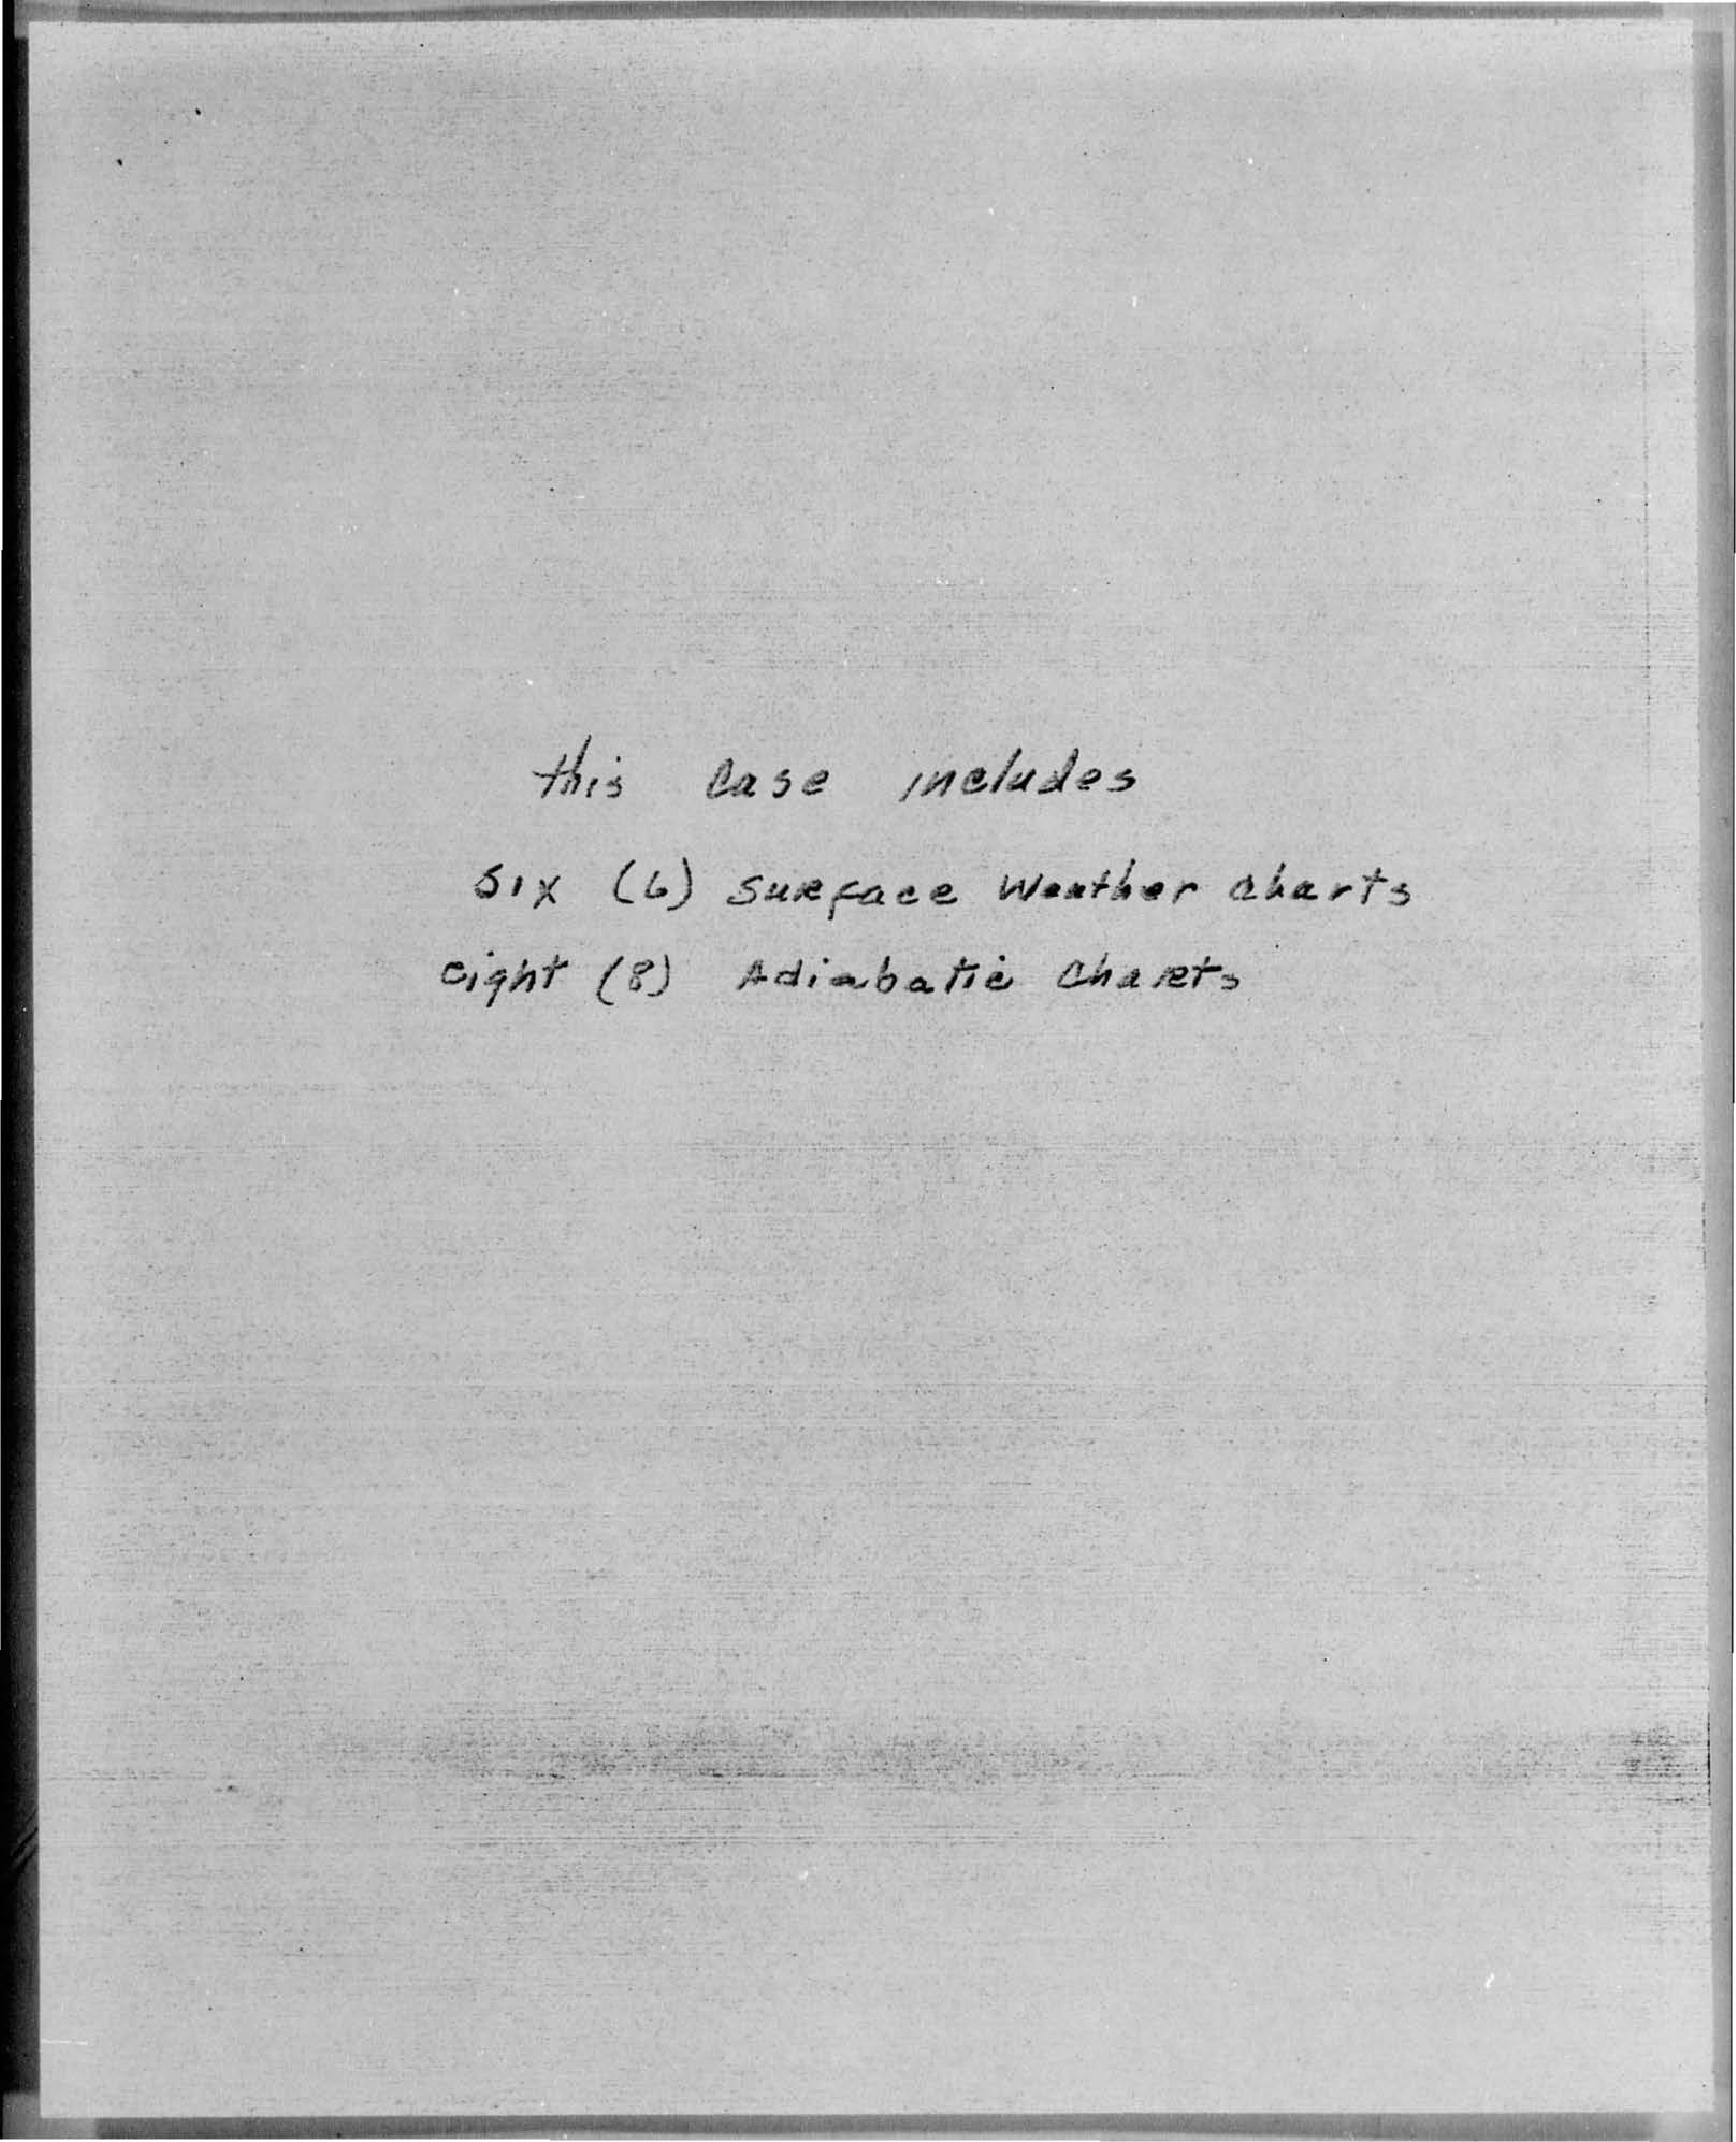 this case includes
six (6) surface Weather charts
eight (8) Adiabatic Charts